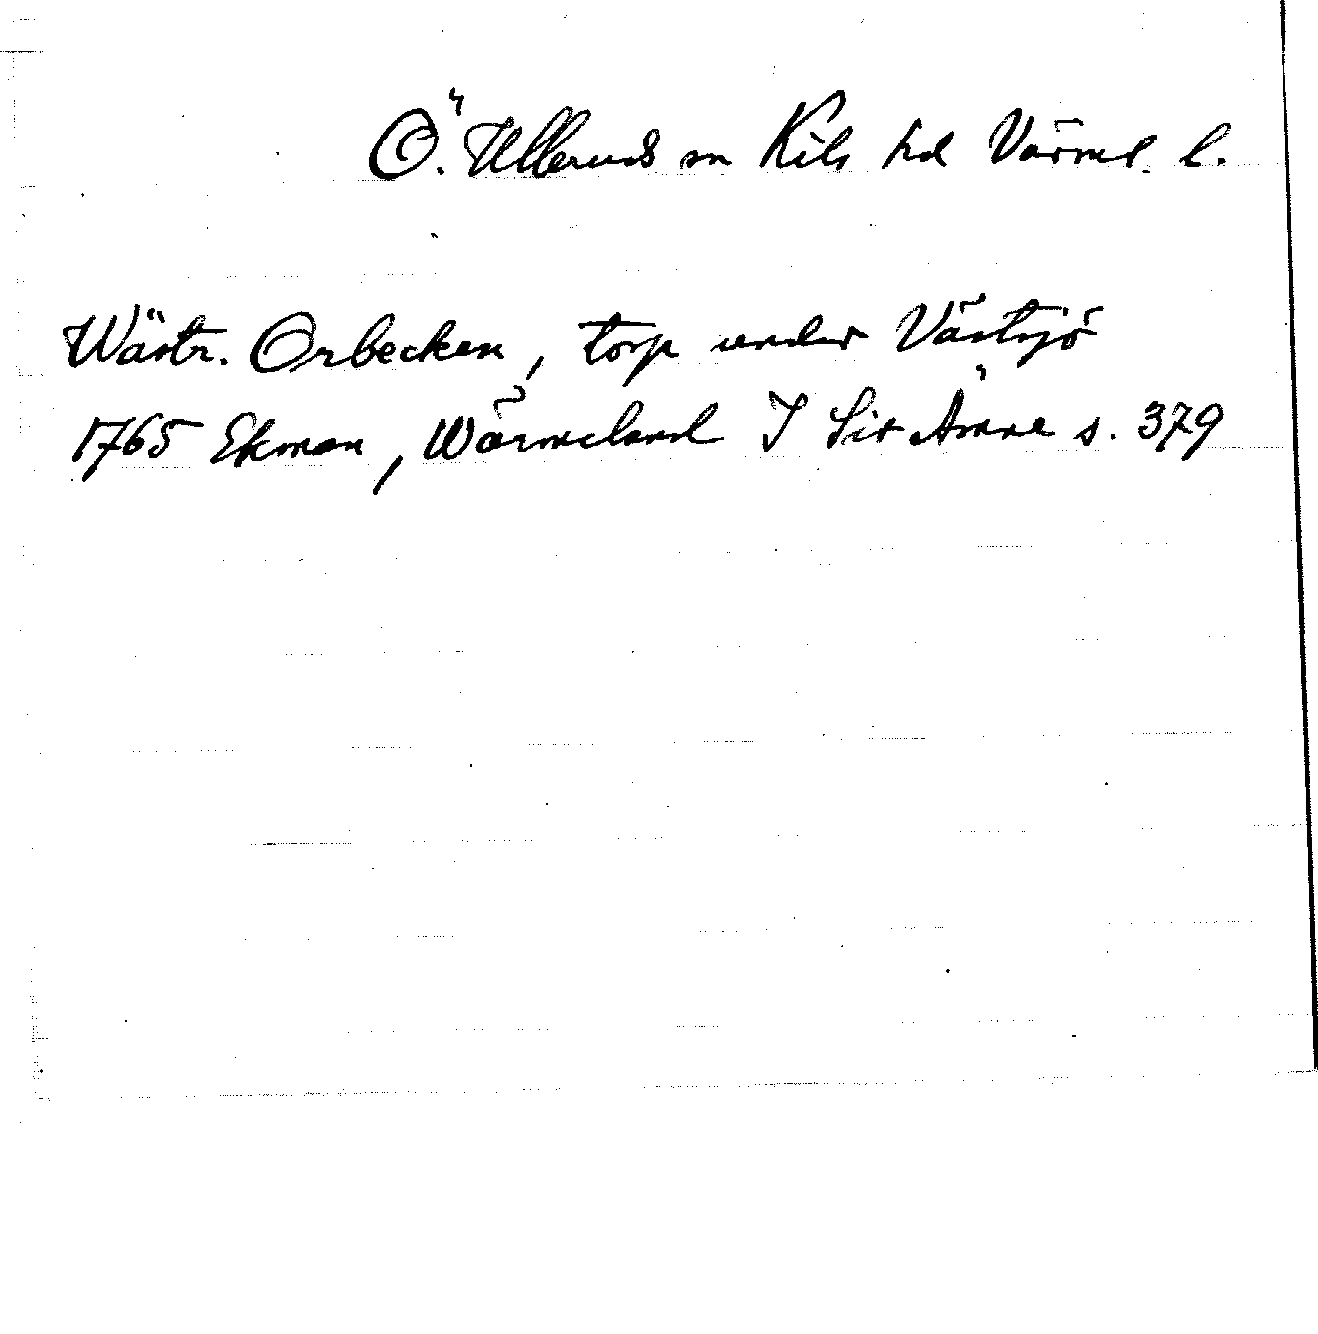 Ö. Ulleruds sn Kils hd Värml. l.
Wästr. Orbecken, torp under Västsjö
1765 Ekman, Wärmeland I sitt Ämne s. 379